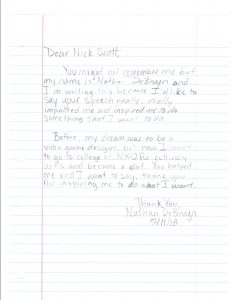 Dear Nick Scott,
You might not remember me but
my name is Nathan DeBruyn and
I'm writing this because I'd like to
say your speech really, really
impacted me and inspired me to do
something that I want to do.
Before, my dream was to be a
video game designer, but now I want
to go to college at NKU for culinary
arts and become a chef. You helped
me and I want to say, thank you
for inspiring me to do what I want.
Thank You,
Nathan DeBruyn
5/11/18